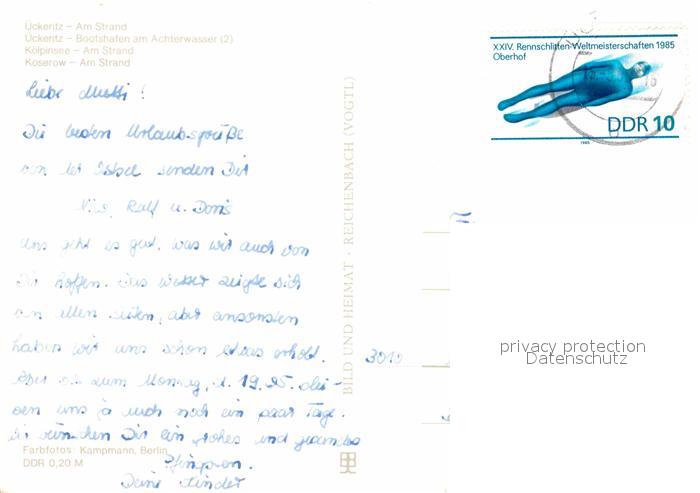 Ückeritz – Am Strand
Ückeritz – Bootshafen am Achterwasser (2)
Kölpinsee – Am Strand
Koserow – Am Strand
XXIV. Rennschlitten-Weltmeisterschaften 1985
Oberhof
DDR 10
1985
Liebe Mutti!
Die besten Urlaubsgrüße
von der Ostsee senden Dir
Ralf u. Doris
Uns geht es gut, was wir auch von
Dir hoffen. Das Wetter zeigte sich
von allen Seiten, aber ansonsten
haben wir uns schon etwas erholt.
zum Montag, d. 19.
uns ja auch noch ein paar Tage.
Wir wünschen Dir ein frohes und gesundes
Pfingsten.
Deine Kinder
BILD UND HEIMAT · REICHENBACH (VOGTL)
3010
privacy protection
Datenschutz
Farbfotos: Kampmann, Berlin
DDR 0,20 M